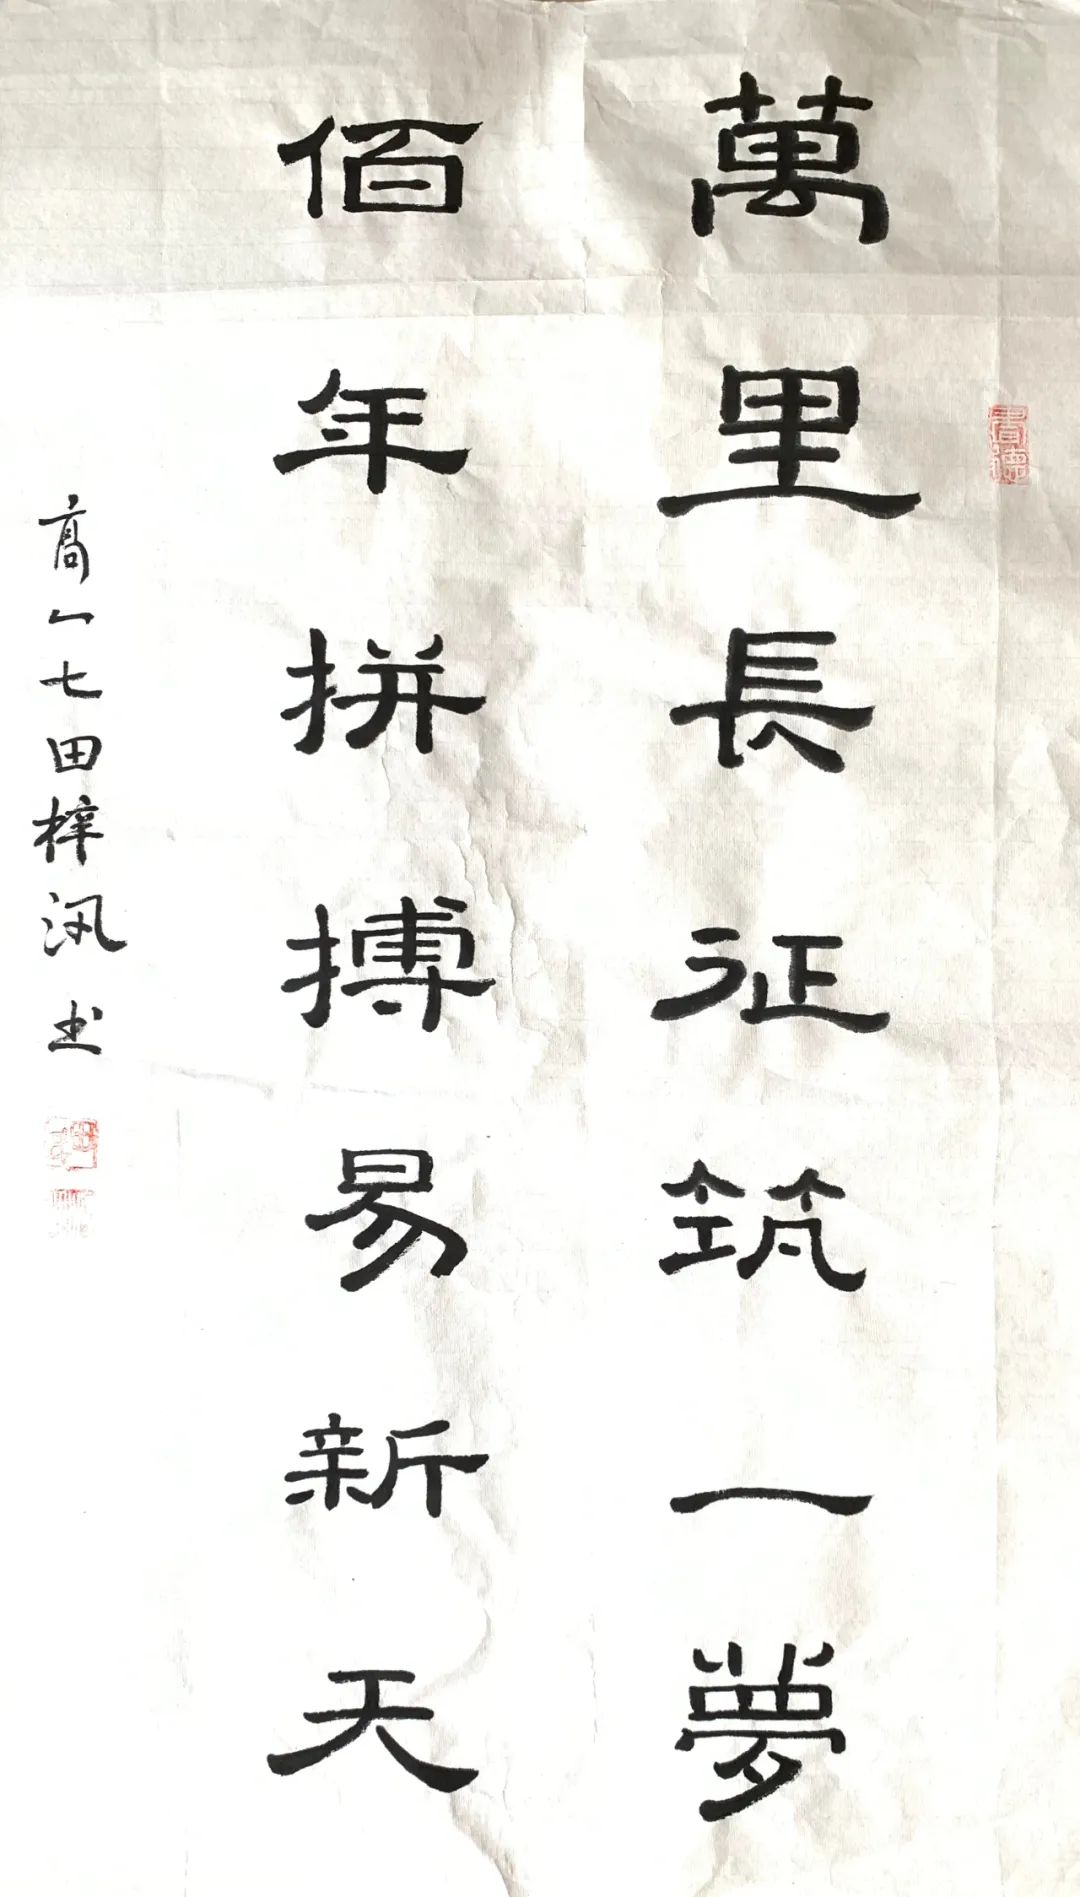 萬里長征筑一夢
佰年拼搏易新天
高一七田梓汎书